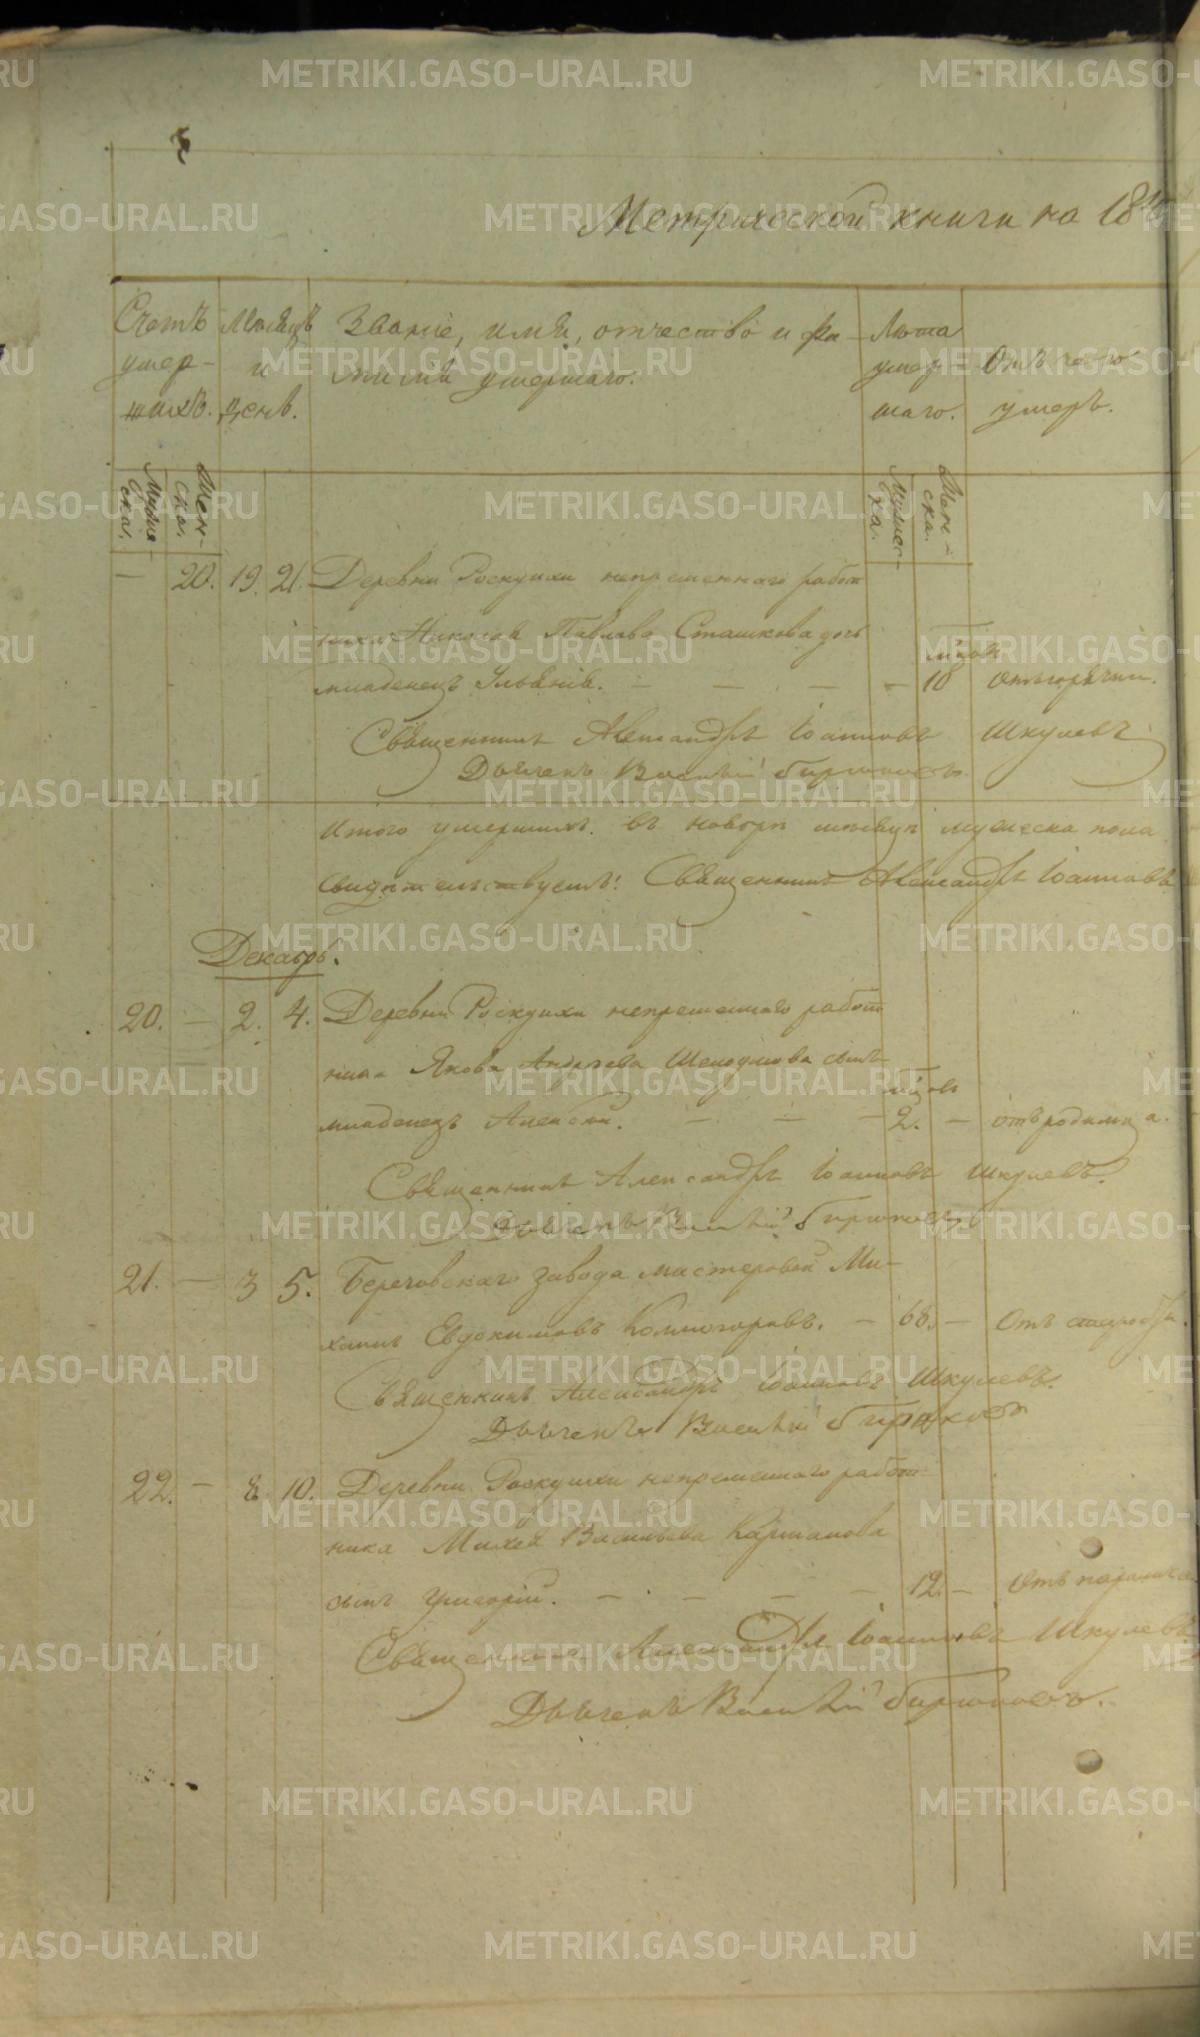 Метрической книги на 18
Счетъ умер- шихъ.
Месяцъ и день.
Званіе, имя, отчество и фа- милія умершаго.
Лета умер шаго.
Отъ чего умеръ.
Мужес- ска.
Жен- ска.
Мужес- ка.
Жен- ска.
— 20. 19. 21. Деревни Роскуихи непременнаго работ
ника Николая Павлова Сташкова дочь
младенецъ Ульянія. — — — — 10 отъ горячки.
Священникъ Александръ Іоанновъ Шкулевъ
Дьячекъ Василій Бирюковъ
Итого умершихъ въ ноябре мужеска пола
свидетельствуетъ: Священникъ Александръ Іоанновъ
Декабрь.
20. — 2. 4. Деревни Роскуихи непременнаго работ
ника Якова Андреева сынъ
младенецъ Алексей. — — — 2. — отъ родимца.
Священникъ Александръ Іоанновъ Шкулевъ.
Дьячекъ Василій Бирюковъ
21. — 3 5. Березовскаго завода мастеровой Ми-
хаилъ Евдокимовъ Комногоровъ. — 68. — Отъ старости.
Священникъ Александръ Іоанновъ Шкулевъ.
Дьячекъ Василій Бирюковъ
22. — 8 10. Деревни Роскуихи непременнаго работ
ника Михея Васильева Карманова
сынъ Григорій. — — — — 12. — Отъ паралича
Священникъ Александръ Іоанновъ Шкулевъ
Дьячекъ Василій Бирюковъ.
METRIKI.GASO-URAL.RU